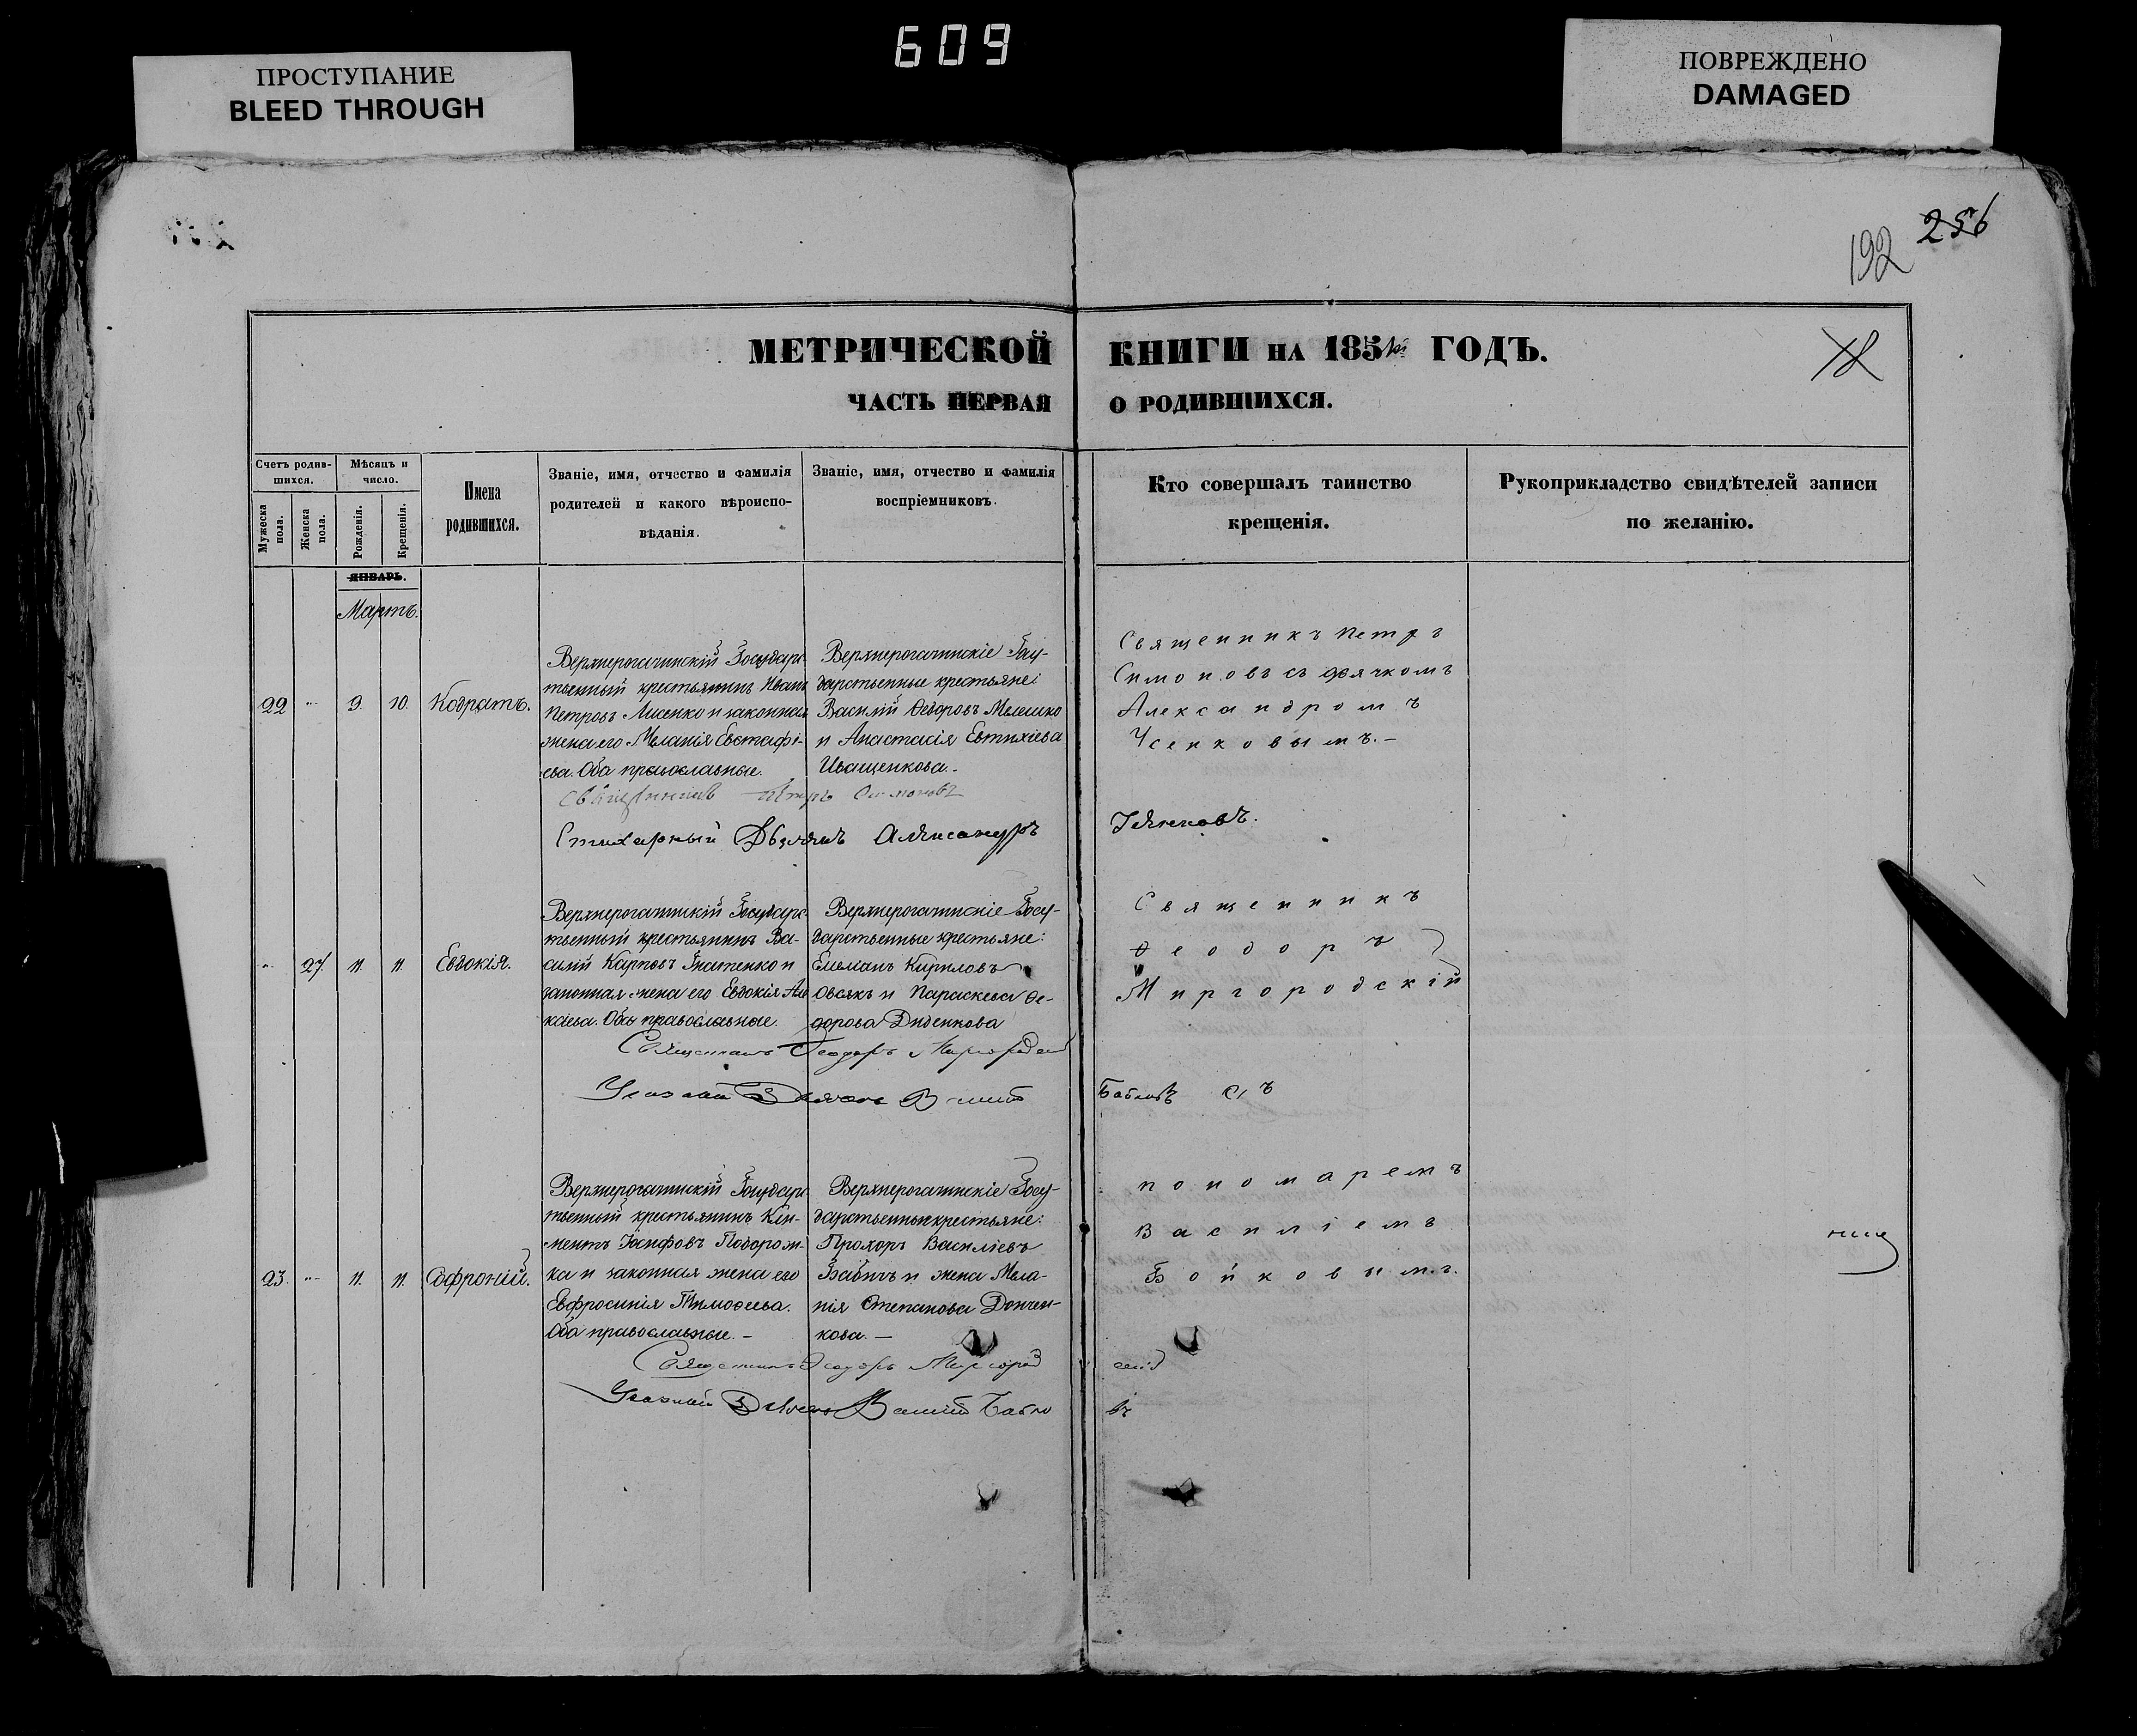 609
ПРОСТУПАНИЕ
BLEED THROUGH
ПОВРЕЖДЕНО
DAMAGED
192 256
МЕТРИЧЕСКОЙ КНИГИ НА 185 ГОДЪ.
ЧАСТЬ ПЕРВАЯ О РОДИВШИХСЯ.
Счетъ родив-
шихся.
Мужеска пола.
Женска пола.
Мѣсяцъ и
число.
Рожденія.
Крещенія.
Имена
родившихся.
Званіе, имя, отчество и фамилія
родителей и какого вѣроиспо-
вѣданія.
Званіе, имя, отчество и фамилія
воспріемниковъ.
Кто совершалъ таинство
крещенія.
Рукоприкладство свидѣтелей записи
по желанію.
ЯНВАРЬ.
Мартъ.
22 " 9. 10. Кодратъ.
Верхнерогачинскій Государс-
твенный крестьянинъ Иванъ
Петровъ Лисенко и законная
жена его Меланія Евстафі-
ева. Оба православные.
Верхнерогачинскіе Госу-
дарственные крестьяне:
Василій Ѳедоровъ Мелешко
и Анастасія Евтихіева
Иващенкова.
Священникъ Петръ
Симоновъ съ дьячкомъ
Александромъ
Усенковымъ.
Священникъ Петръ Симоновъ
Стихарный Дьячекъ Александръ Усенковъ.
" 27. 11. 11. Евдокія.
Верхнерогачинскій Государс-
твенный крестьянинъ Ва-
силій Карповъ Игнатенко и
законная жена его Евдокія
Оба православные.
Верхнерогачинскіе Госу-
дарственные крестьяне:
Емельянъ Кириловъ
Овсякъ и Параскева Ѳе-
дорова Диденкова
Священникъ
Ѳеодоръ
Миргородскій
Священникъ Ѳеодоръ Миргородскій
Указный Дьячекъ
23. " 11. 11. Софроній.
Верхнерогачинскій Государс-
твенный крестьянинъ Кли-
ментъ Іосифовъ Подорож-
ка и законная жена его
Евфросинія Тимоѳеева.
Оба православные.
Верхнерогачинскіе Госу-
дарственные крестьяне:
Прохоръ Василіевъ
Бабичъ и жена Мела-
нія Степанова Дончен-
кова.
пономаремъ
Василіемъ
Бойковымъ.
Священникъ Ѳеодоръ Миргородскій
Указный Дьячекъ